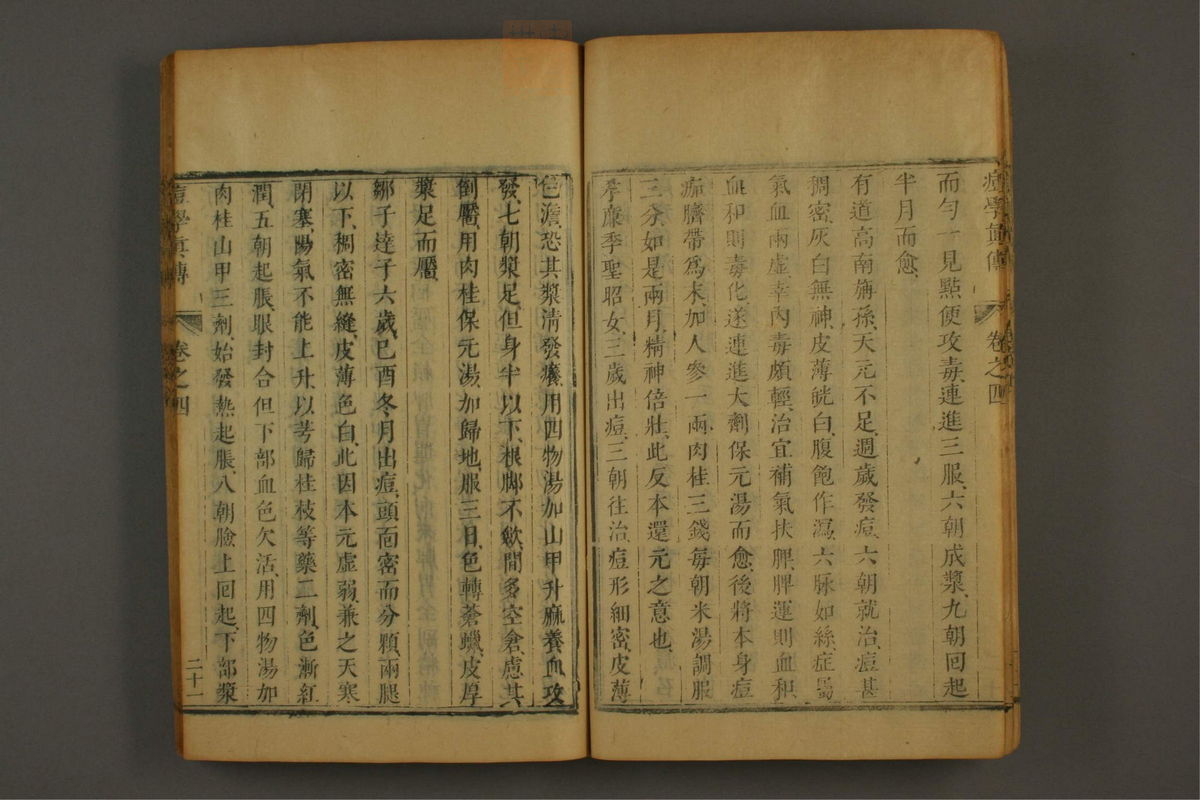 痘學眞傳 卷之四
而勻一見點便攻毒連進三服六朝成漿九朝回起
半月而愈
有道高南旃孫天元不足週歲發痘六朝就治痘甚
稠密灰白無神皮薄㿠白腹飽作瀉六脉如絲症屬
氣血兩虛幸內毒頗輕治宜補氣扶脾脾運則血和
血和則毒化遂連進大劑保元湯而愈後將本身痘
痂臍帶爲末加人參一兩肉桂三錢每朝米湯調服
三分如是兩月精神倍壯此反本還元之意也
孝廉季聖昭女三歲出痘三朝往治痘形細密皮薄
色澹恐其漿清發癢用四物湯加山甲升麻養血攻
發七朝漿足但身半以下根脚不歛間多空倉慮其
倒靨用肉桂保元湯加歸地服三日色轉蒼蠟皮厚
漿足而靨
鄒子逵子六歲巳酉冬月出痘頭面密而分顆兩腿
以下稠密無縫皮薄色白此因本元虛弱兼之天寒
閉塞陽氣不能上升以芎歸桂枝等藥二劑色漸紅
潤五朝起脹眼封合但下部血色欠活用四物湯加
肉桂山甲三劑始發熱起脹八朝臉上囘起下部漿
痘學眞傳 卷之四 二十一